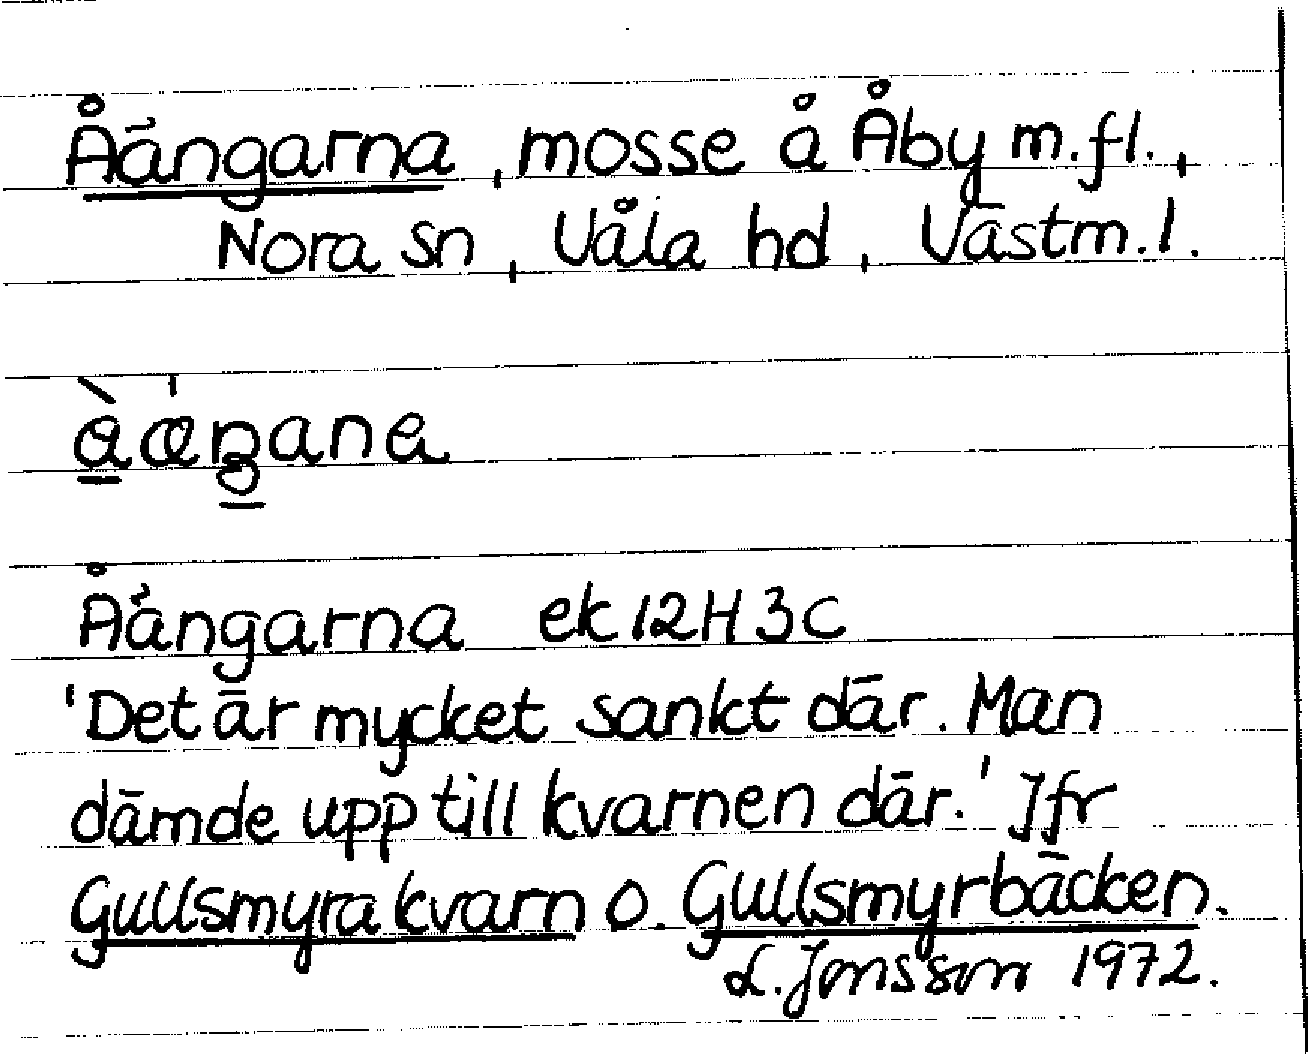 Åängarna, mosse å Åby m.fl.,
Nora sn, Våla hd, Västm.l.
Åängarna ek 12H 3c
'Det är mycket sankt där. Man
dämde upp till kvarnen där.' Jfr
Gullsmyra kvarn o. Gullsmyrbäcken.
L. Jonsson 1972.